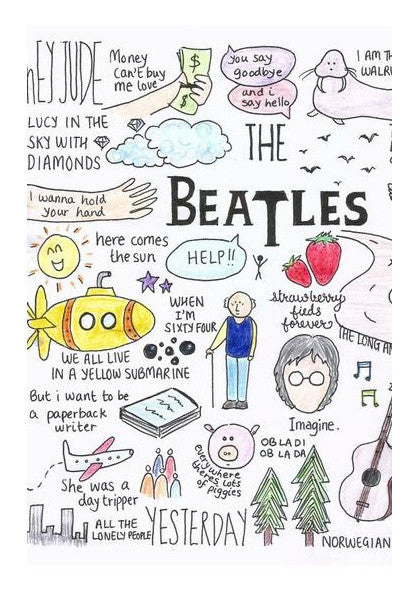 HEY JUDE
Money
can't buy
me love
$
you say
goodbye
and i
say hello
I AM TH
WALR
LUCY IN THE
SKY WITH
DIAMONDS
THE
BEATLES
I wanna hold
your hand
here comes
the sun
HELP!!
strawberry
fieds
forever
WHEN
I'M
SIXTY FOUR
THE LONG AN
WE ALL LIVE
IN A YELLOW SUBMARINE
But i want to be
a paperback
writer
Imagine.
everywhere
theres lots
of piggies
OBLADI
OB LA DA
She was a
day tripper
ALL THE
LONELY PEOPLE
YESTERDAY
NORWEGIAN